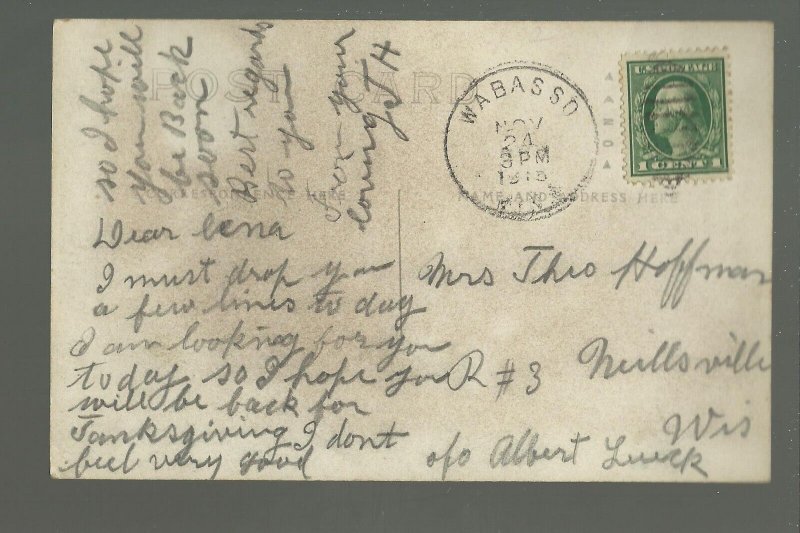 POST CARD
WABASSO
NOV
24
3PM
MINN
U.S. POSTAGE
1 CENT 1
CORRESPONDENCE HERE
NAME AND ADDRESS HERE
Dear Lena
I must drop you
a few lines to day
I am looking for you
today so I hope you
will be back for
Tanksgiving I dont
feel very good
so I hope
you will
be Back
soon
Best regards
to you
from your
loving
Mrs Theo Hoffman
R #3 Neillsville
Wis
c/o Albert Lueck